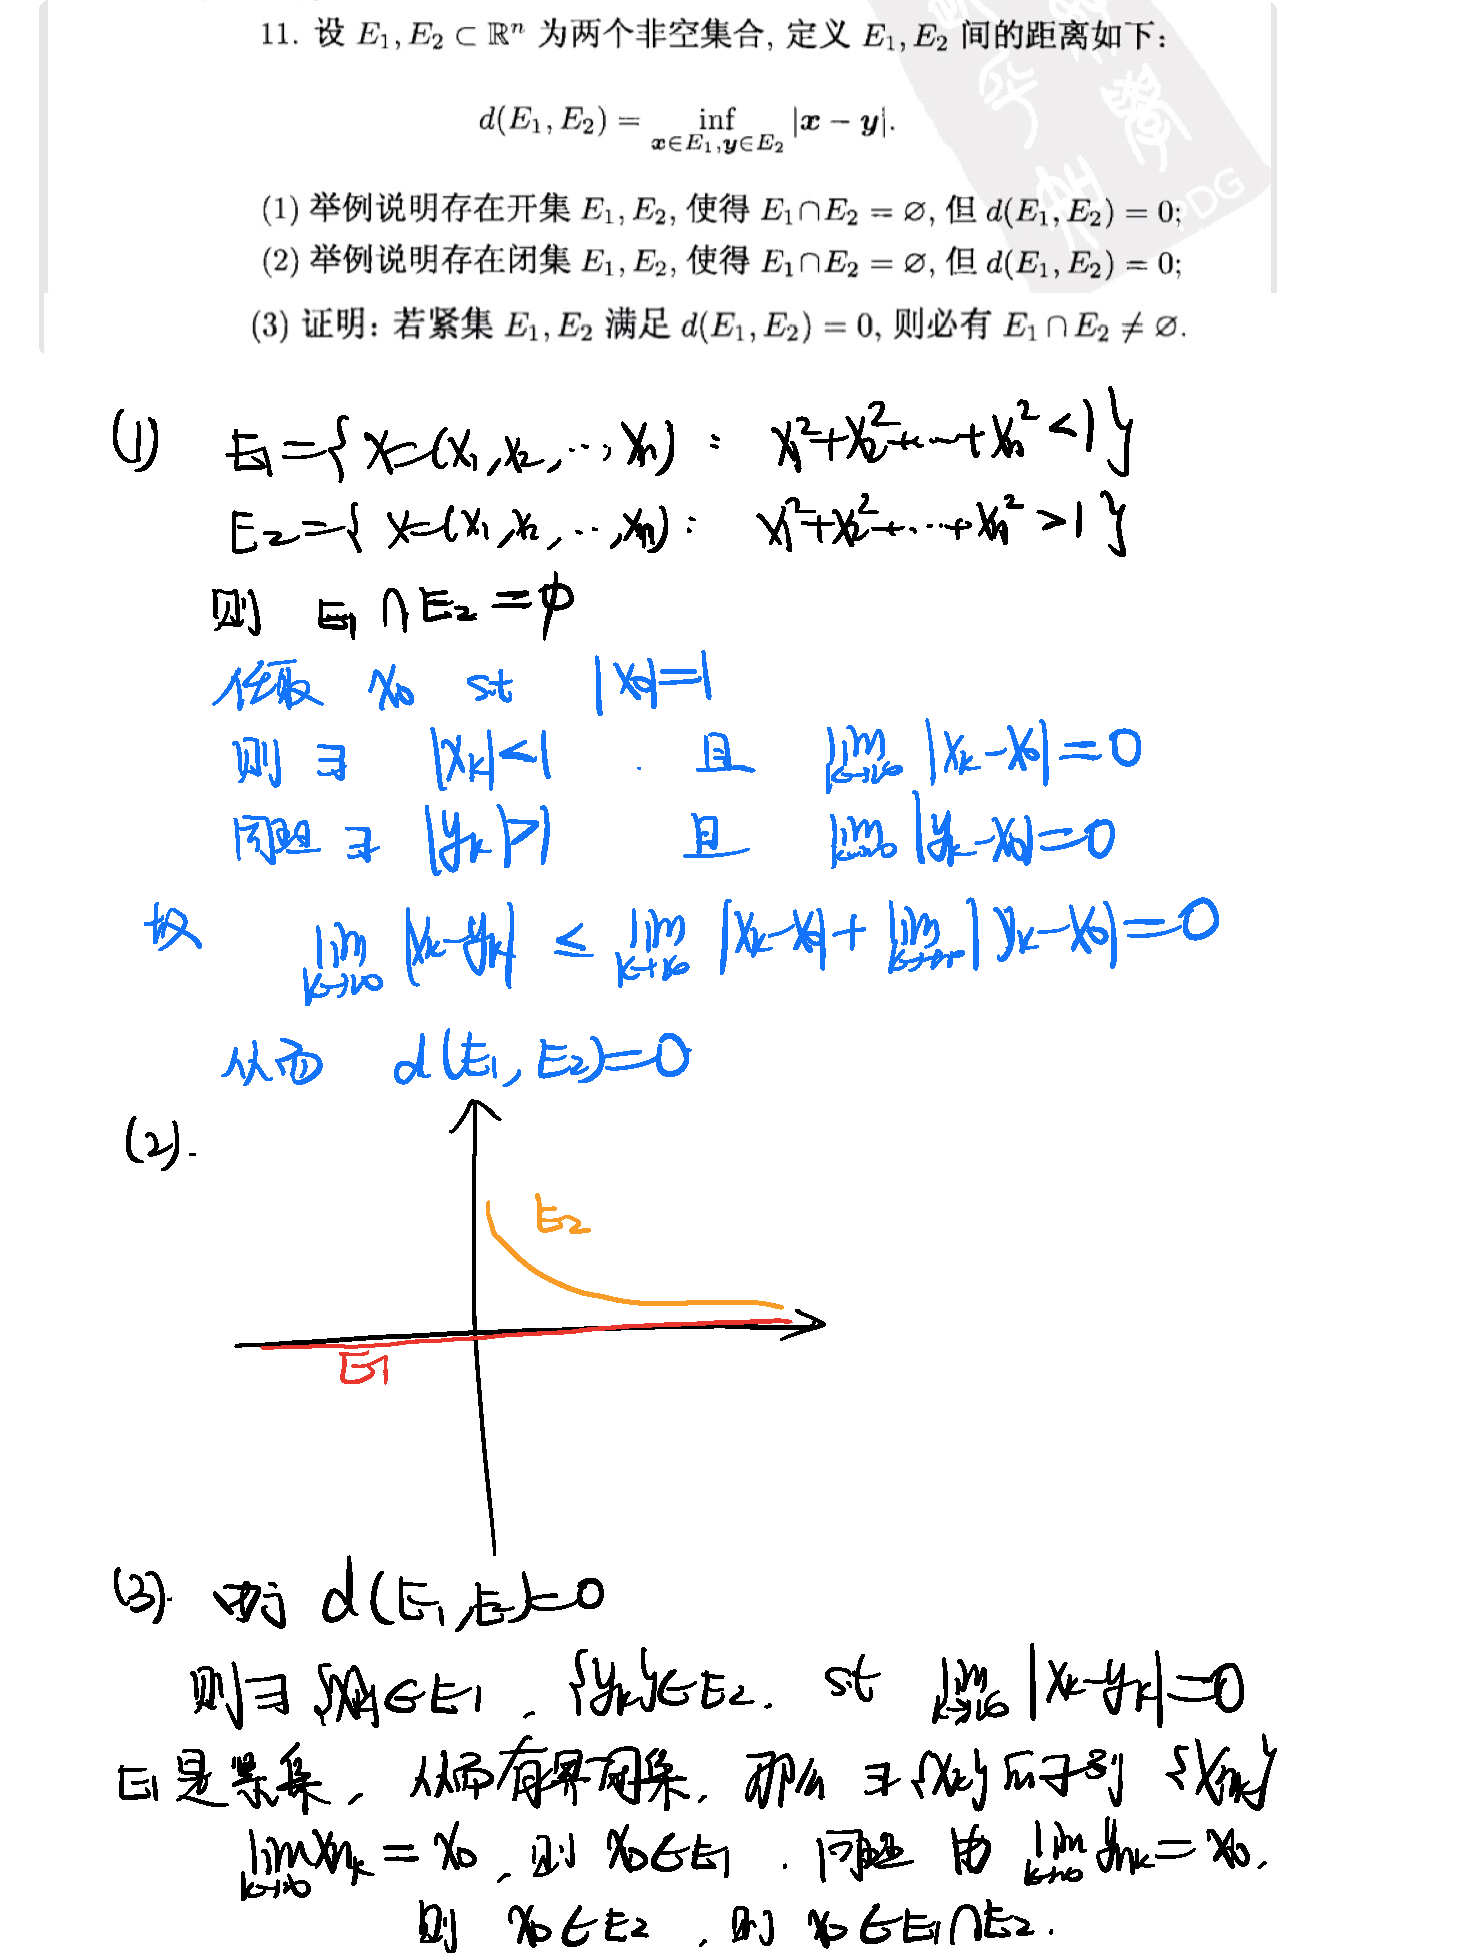 11. 设 E₁, E₂ ⊂ ℝⁿ 为两个非空集合, 定义 E₁, E₂ 间的距离如下:
d(E₁, E₂) = inf_{x∈E₁,y∈E₂} |x − y|.
(1) 举例说明存在开集 E₁, E₂, 使得 E₁∩E₂ = ∅, 但 d(E₁, E₂) = 0;
(2) 举例说明存在闭集 E₁, E₂, 使得 E₁∩E₂ = ∅, 但 d(E₁, E₂) = 0;
(3) 证明: 若紧集 E₁, E₂ 满足 d(E₁, E₂) = 0, 则必有 E₁ ∩ E₂ ≠ ∅.
(1) E₁={x=(x₁,x₂,…,xₙ): x₁²+x₂²+…+xₙ²<1}
E₂={x=(x₁,x₂,…,xₙ): x₁²+x₂²+…+xₙ²>1}
则 E₁∩E₂=φ
任取 x₀ st |x₀|=1
则 ∃ |xₖ|<1 . 且 lim_{k→∞} |xₖ−x₀|=0
同理 ∃ |yₖ|>1 且 lim_{k→∞} |yₖ−x₀|=0
故 lim_{k→∞} |xₖ−yₖ| ≤ lim_{k→∞} |xₖ−x₀|+lim_{k→∞} |yₖ−x₀|=0
从而 d(E₁,E₂)=0
(2).
E₂
E₁
(3). 由于 d(E₁,E₂)=0
则∃ {xₖ}∈E₁, {yₖ}∈E₂. st lim_{k→∞} |xₖ−yₖ|=0
E₁是紧集, 从而有界闭集. 那么 ∃ {xₖ}的子列 {x_{nₖ}}
lim_{k→∞} x_{nₖ} = x₀, 则 x₀∈E₁. 同理 由 lim_{k→∞} y_{nₖ}=x₀,
则 x₀∈E₂, 则 x₀∈E₁∩E₂.